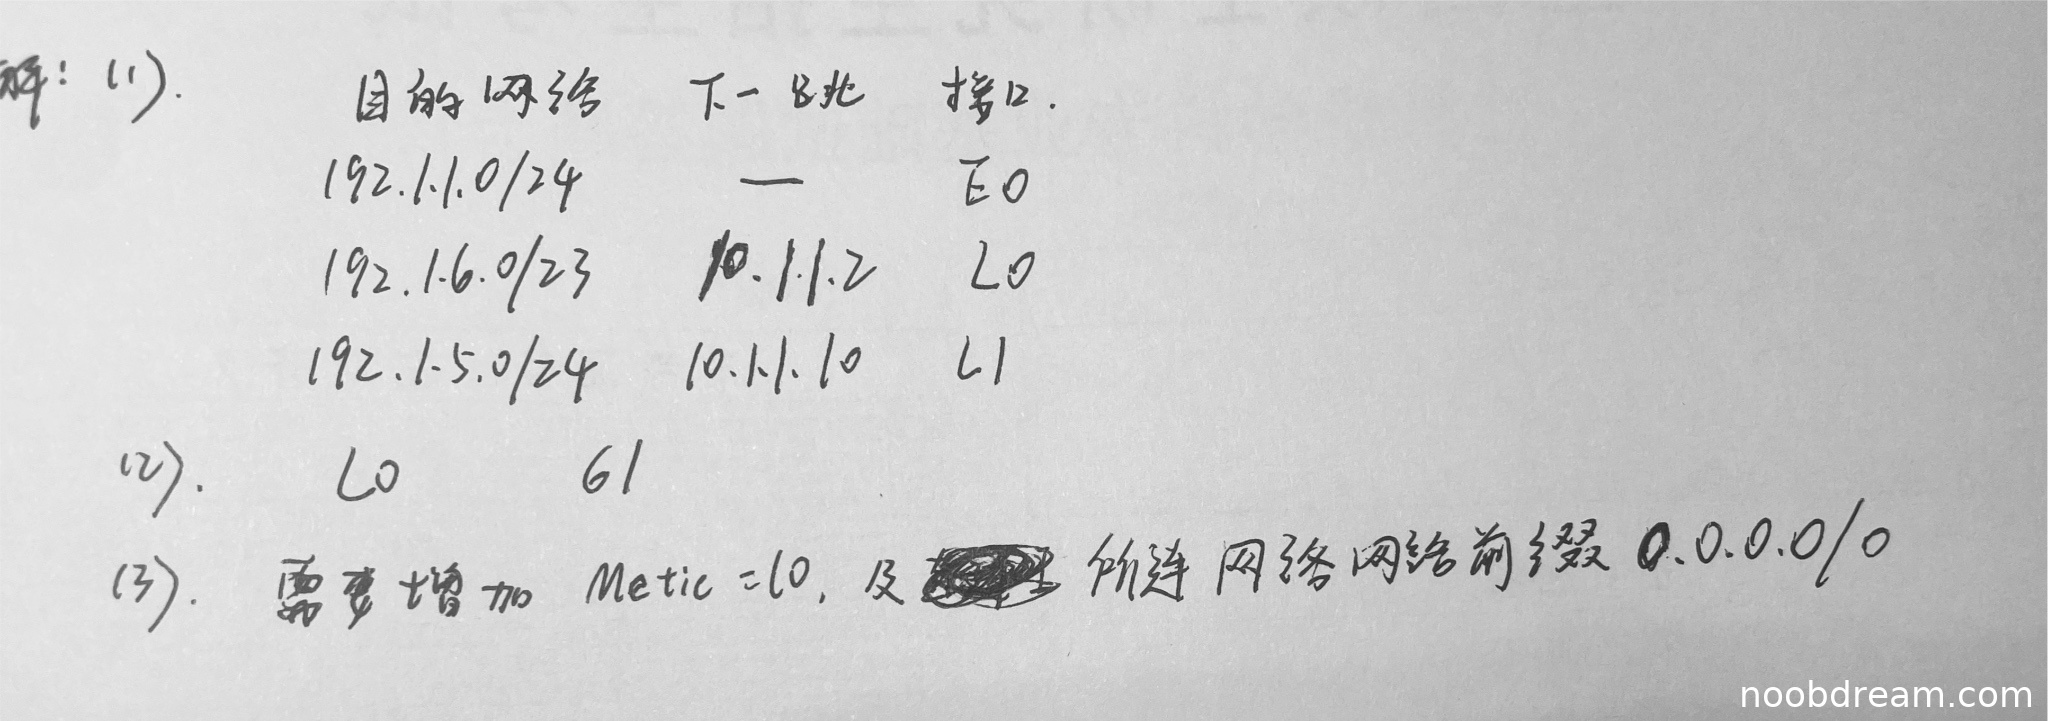 解: (1).
目的网络 下一跳 接口.
192.1.1.0/24 — E0
192.1.6.0/23 10.1.1.2 L0
192.1.5.0/24 10.1.1.10 L1
(2). L0 61
(3). 需要增加 Metic=10, 及 所连网络网络前缀 0.0.0.0/0
noobdream.com